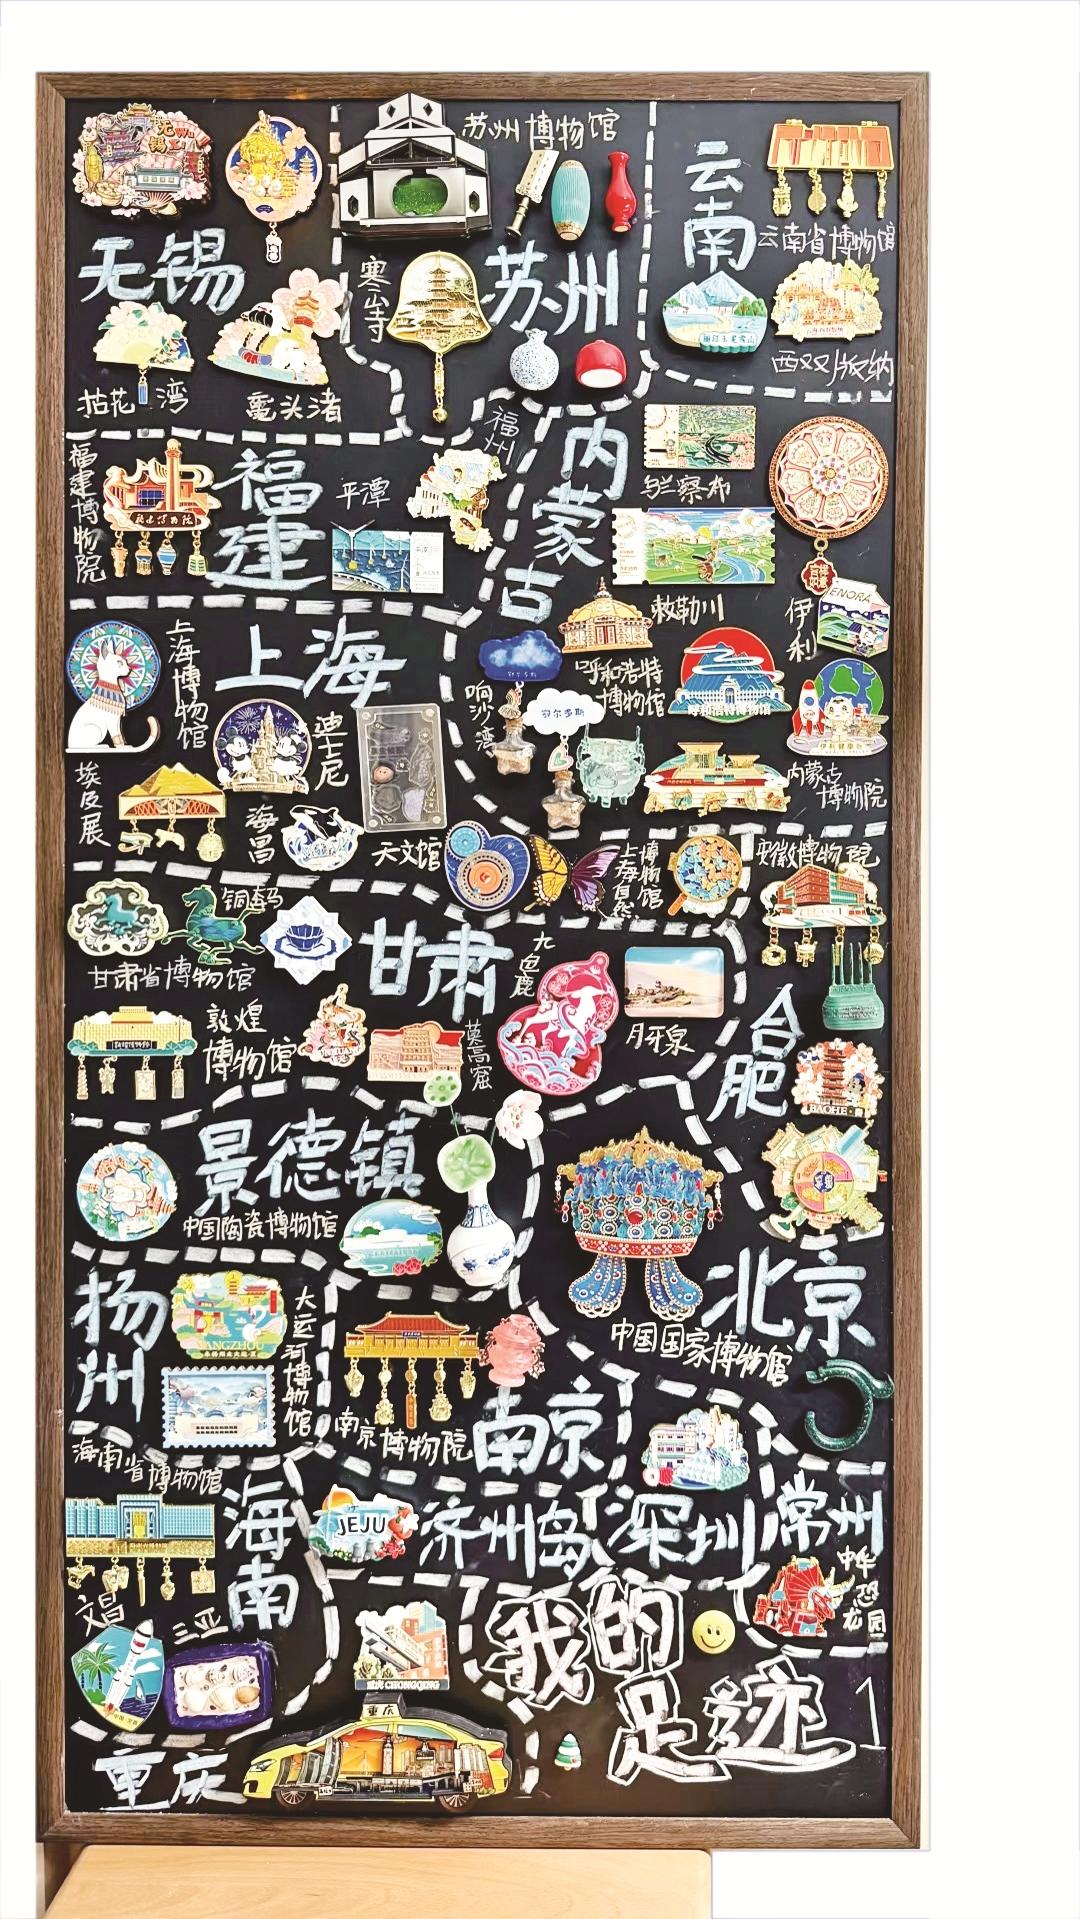 苏州博物馆
无锡
Wuxi
无锡
寒山寺
苏州
云南
云南省博物馆
丽江玉龙雪山
西双版纳
拈花湾
鼋头渚
福建博物院
福建
平潭
福州
内蒙古
乌兰察布
敕勒川
伊利
ENORA
上海博物馆
上海
迪士尼
埃及展
海昌
天文馆
响沙湾
鄂尔多斯
呼和浩特博物馆
呼和浩特博物馆
伊利健康谷
内蒙古博物院
上海自然博物馆
安徽博物院
铜奔马
甘肃省博物馆
甘肃
九色鹿
月牙泉
敦煌博物馆
莫高窟
合肥
BAOHE
景德镇
中国陶瓷博物馆
北京
中国国家博物馆
扬州
YANGZHOU
大运河博物馆
南京博物院
南京
海南省博物馆
海南
JEJU
济州岛
深圳
常州
中华恐龙园
文昌
三亚
重庆 CHONGQING
重庆
重庆
我的足迹1